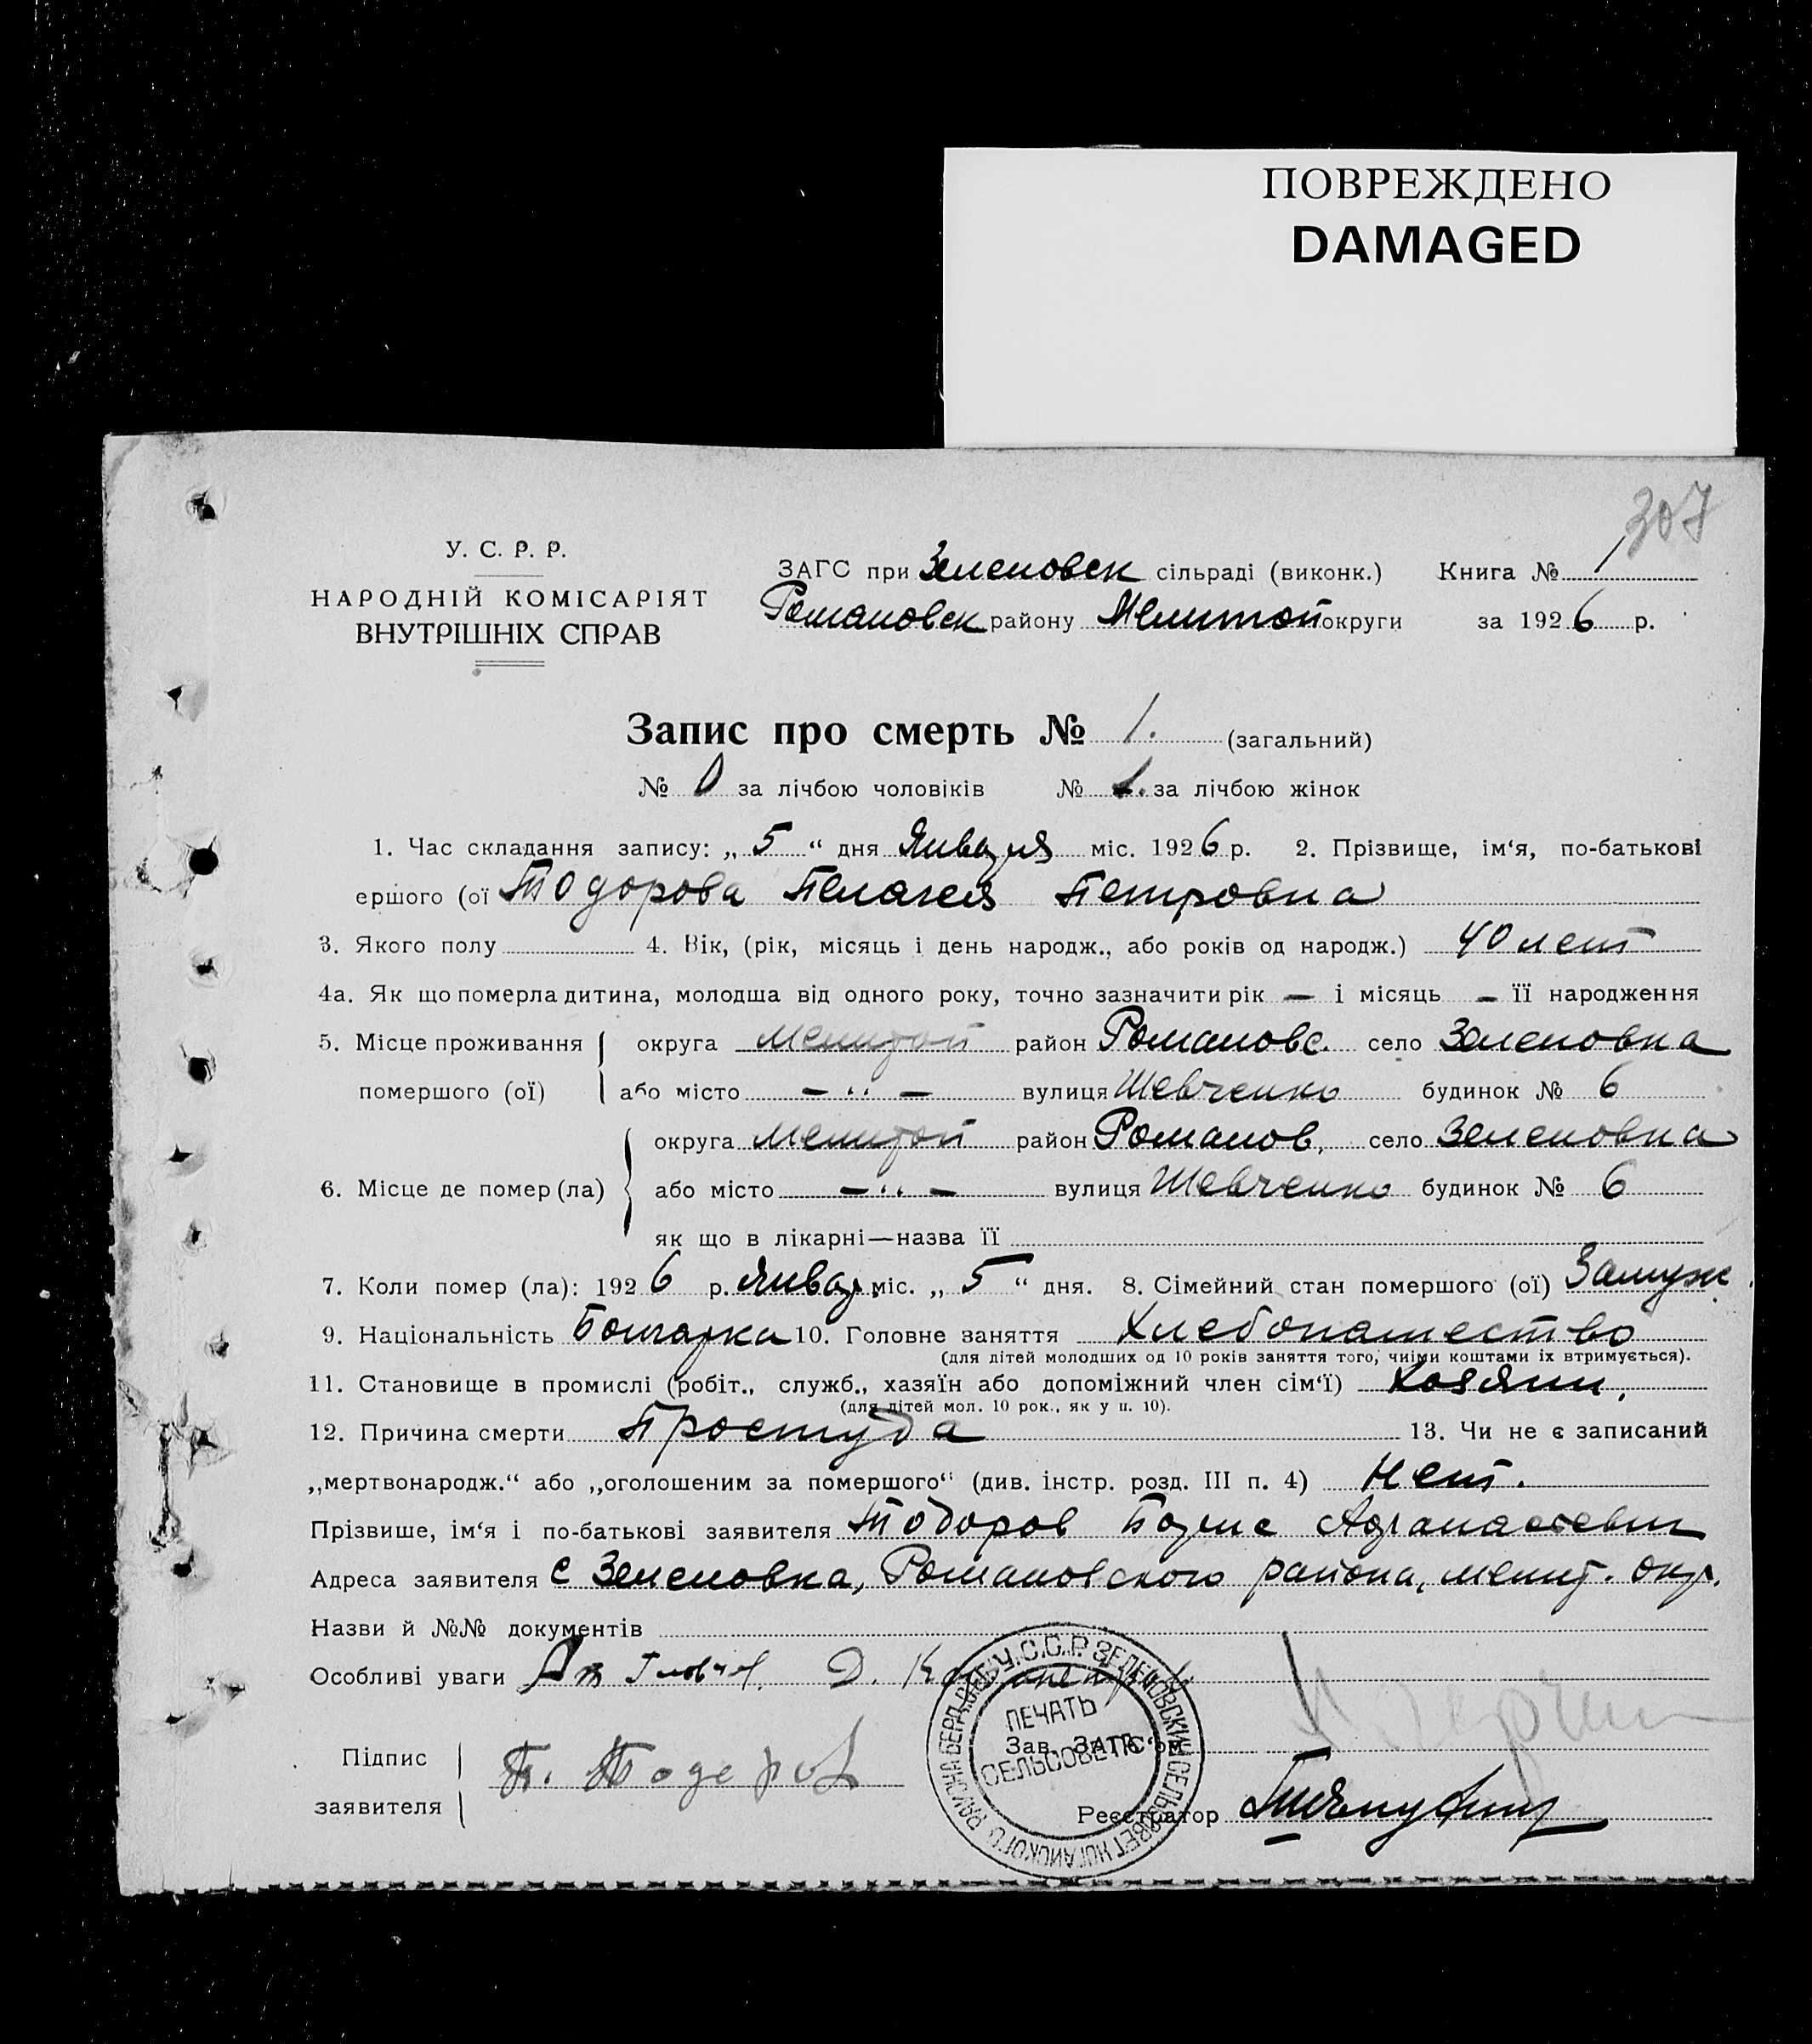 ПОВРЕЖДЕНО
DAMAGED
307
У. С. Р. Р.
НАРОДНІЙ КОМІСАРІЯТ
ВНУТРІШНІХ СПРАВ
ЗАГС при Зеленовск сільраді (виконк.) Книга № 1
Романовск району Мелитоп округи за 1926 р.
Запис про смерть № 1. (загальний)
№ 0 за лічбою чоловіків № 1. за лічбою жінок
1. Час складання запису: „ 5 “ дня Января міс. 1926 р. 2. Прізвище, ім‘я, по-батькові
ершого (ої Тодорова Пелагея Петровна
3. Якого полу 4. Вік, (рік, місяць і день народж., або років од народж.) 40 лет
4а. Як що померла дитина, молодша від одного року, точно зазначити рік — і місяць – її народження
5. Місце проживання округа Мелитоп район Романовс. село Зеленовка
помершого (ої) або місто — „ — вулиця Шевченко будинок № 6
округа Мелитоп район Романов. село Зеленовка
6. Місце де помер (ла) або місто — „ — вулиця Шевченко будинок № 6
як що в лікарні—назва її
7. Коли помер (ла): 1926 р. Январ міс. „ 5 “ дня. 8. Сімейний стан помершого (ої) Замуж.
9. Національність Болгарка 10. Головне заняття Хлебопашество
(для дітей молодших од 10 років заняття того, чиїми коштами їх втримується).
11. Становище в промислі (робіт., служб., хазяїн або допоміжний член сім‘ї) Хозяин.
(для дітей мол. 10 рок., як у п. 10).
12. Причина смерти Простуда 13. Чи не є записаний
„мертвонародж.“ або „оголошеним за помершого“ (див. інстр. розд. III п. 4) Нет.
Прізвише, ім‘я і по-батькові заявителя Тодоров Борис Афанасьевич
Адреса заявителя с Зеленовка, Романовского района, мелит. окр.
Назви й №№ документів
Особливі уваги Д.
У.С.С.Р. ЗЕЛЕНОВСКИЙ СЕЛЬСОВЕТ НОГАЙСКОГО РАЙОНА БЕРД.
ПЕЧАТЬ
СЕЛЬСОВЕТА
Зав. ЗАГС‘ом
Підпис
заявителя
Тодоров
Реєстратор